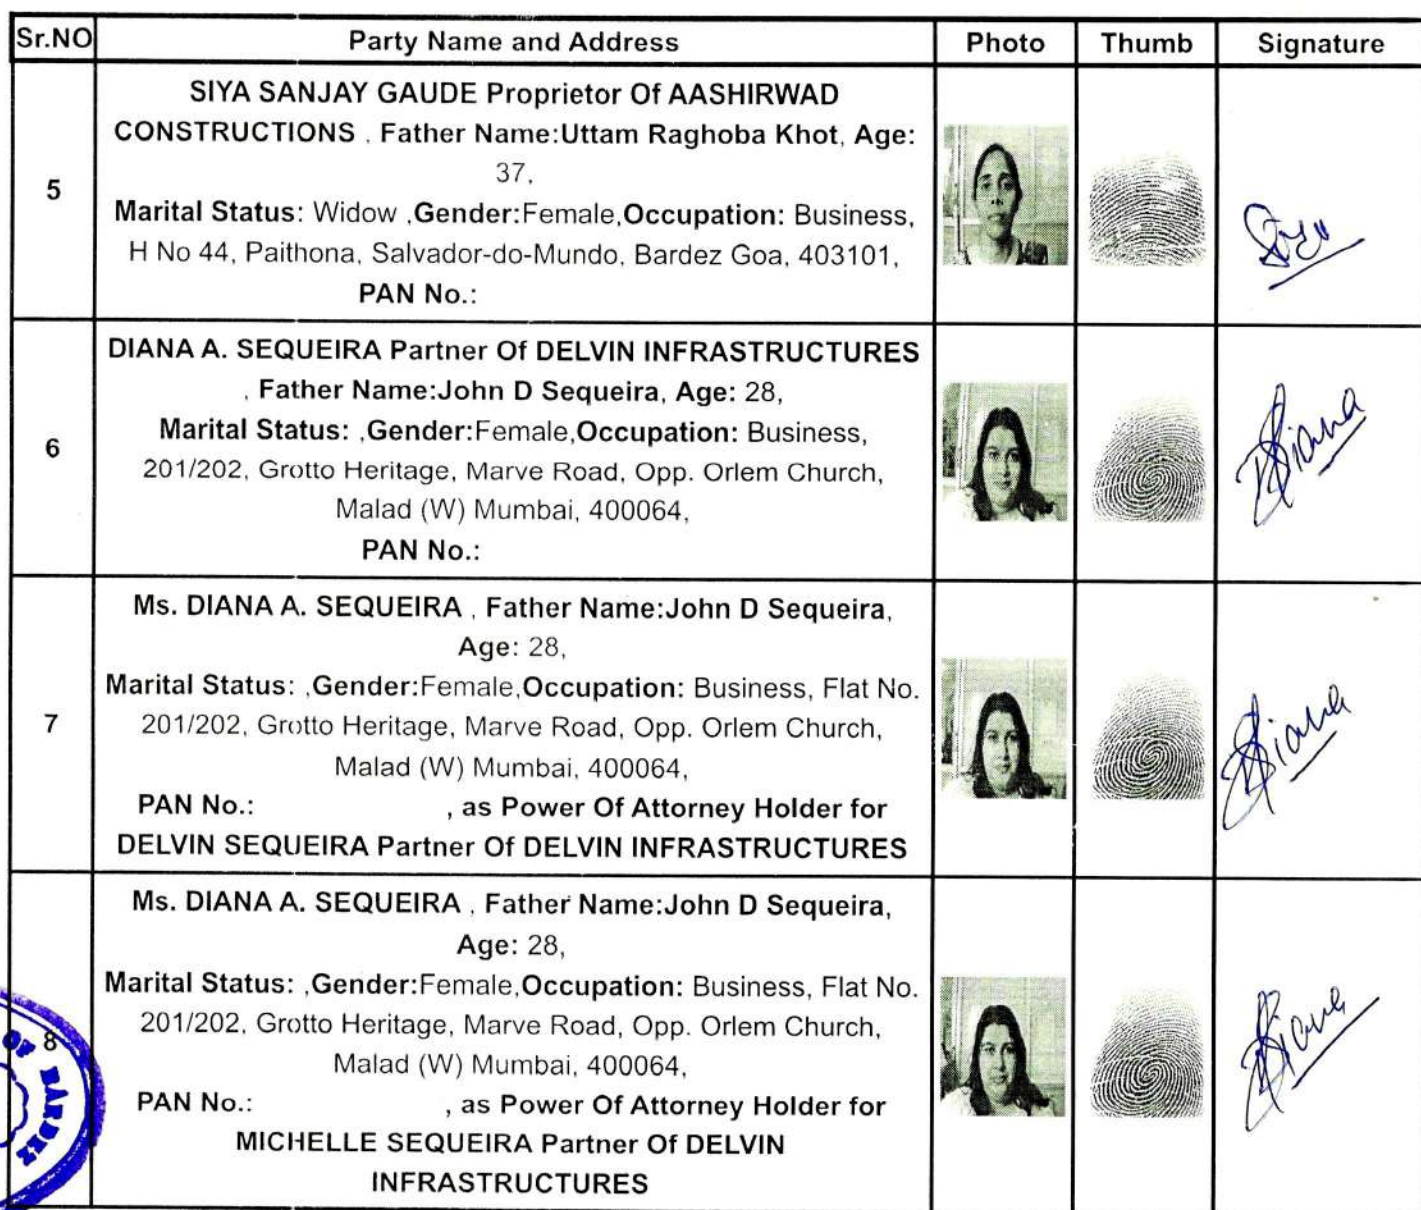 Sr.NO Party Name and Address Photo Thumb Signature
SIYA SANJAY GAUDE Proprietor Of AASHIRWAD
CONSTRUCTIONS , Father Name:Uttam Raghoba Khot, Age:
37,
5
Marital Status: Widow ,Gender:Female,Occupation: Business,
H No 44, Paithona, Salvador-do-Mundo, Bardez Goa, 403101,
PAN No.:
DIANA A. SEQUEIRA Partner Of DELVIN INFRASTRUCTURES
, Father Name:John D Sequeira, Age: 28,
Marital Status: ,Gender:Female,Occupation: Business,
6
201/202, Grotto Heritage, Marve Road, Opp. Orlem Church,
Malad (W) Mumbai, 400064,
PAN No.:
Diana
Ms. DIANA A. SEQUEIRA , Father Name:John D Sequeira,
Age: 28,
Marital Status: ,Gender:Female,Occupation: Business, Flat No.
7
201/202, Grotto Heritage, Marve Road, Opp. Orlem Church,
Malad (W) Mumbai, 400064,
PAN No.: , as Power Of Attorney Holder for
DELVIN SEQUEIRA Partner Of DELVIN INFRASTRUCTURES
Diana
Ms. DIANA A. SEQUEIRA , Father Name:John D Sequeira,
Age: 28,
Marital Status: ,Gender:Female,Occupation: Business, Flat No.
201/202, Grotto Heritage, Marve Road, Opp. Orlem Church,
8
Malad (W) Mumbai, 400064,
PAN No.: , as Power Of Attorney Holder for
MICHELLE SEQUEIRA Partner Of DELVIN
INFRASTRUCTURES
Diana
OF BARDEZ